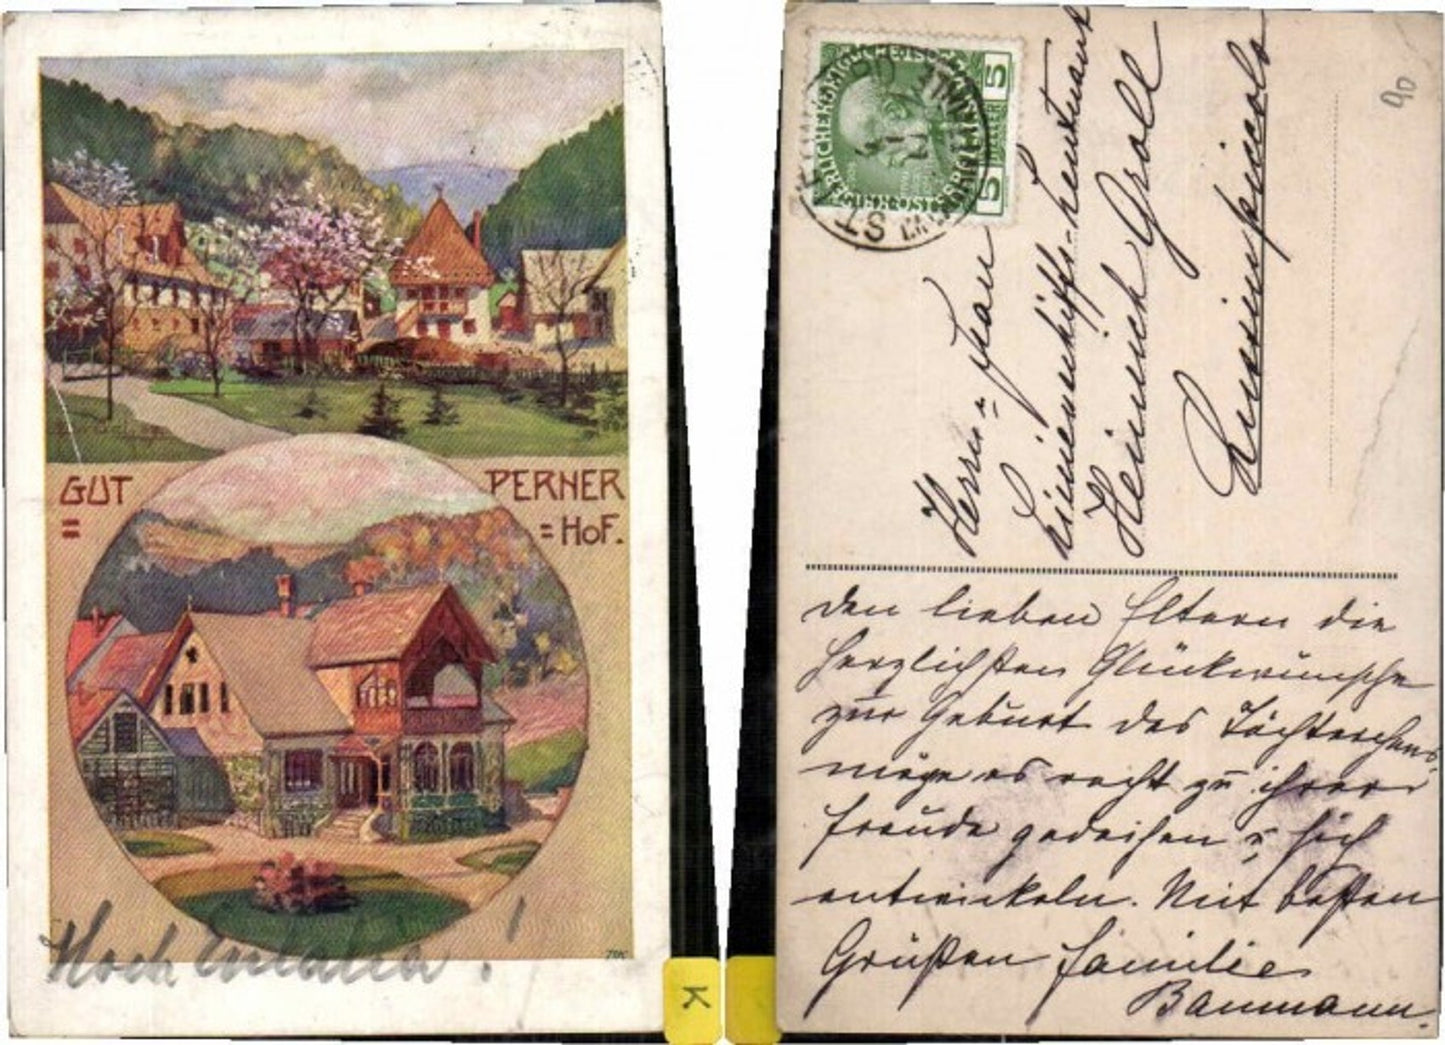 GUT
PERNER
= HOF.
=
Hoch !
K
KAISERLICHE KÖNIGLICHE ÖSTERR. POST
5 HELLER 5
ST
90
Herrn = Frau
Linienschiffs-Leutnant
Heinrich Groll
Lussinpiccolo
Den lieben Eltern die
herzlichsten Glückwünsche
zur Geburt des Töchterchens,
möge es recht zu ihrer
Freude gedeihen u. sich
entwickeln. Mit besten
Grüßen Familie
Baumann.